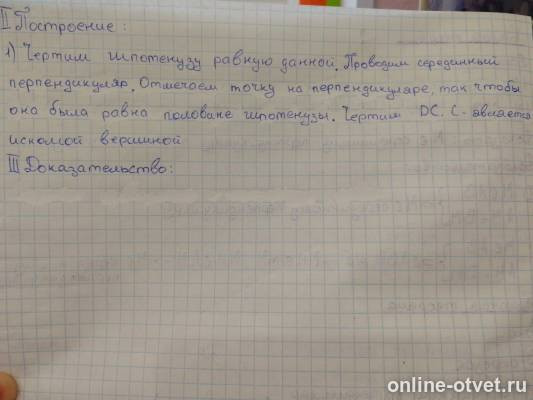 II Построение:
1) Чертим гипотенузу равную данной. Проводим серединный
перпендикуляр. Отмечаем точку на перпендикуляре, так чтобы
она была равна половине гипотенузы. Чертим DC. C - является
искомой вершиной
III Доказательство:
online-otvet.ru